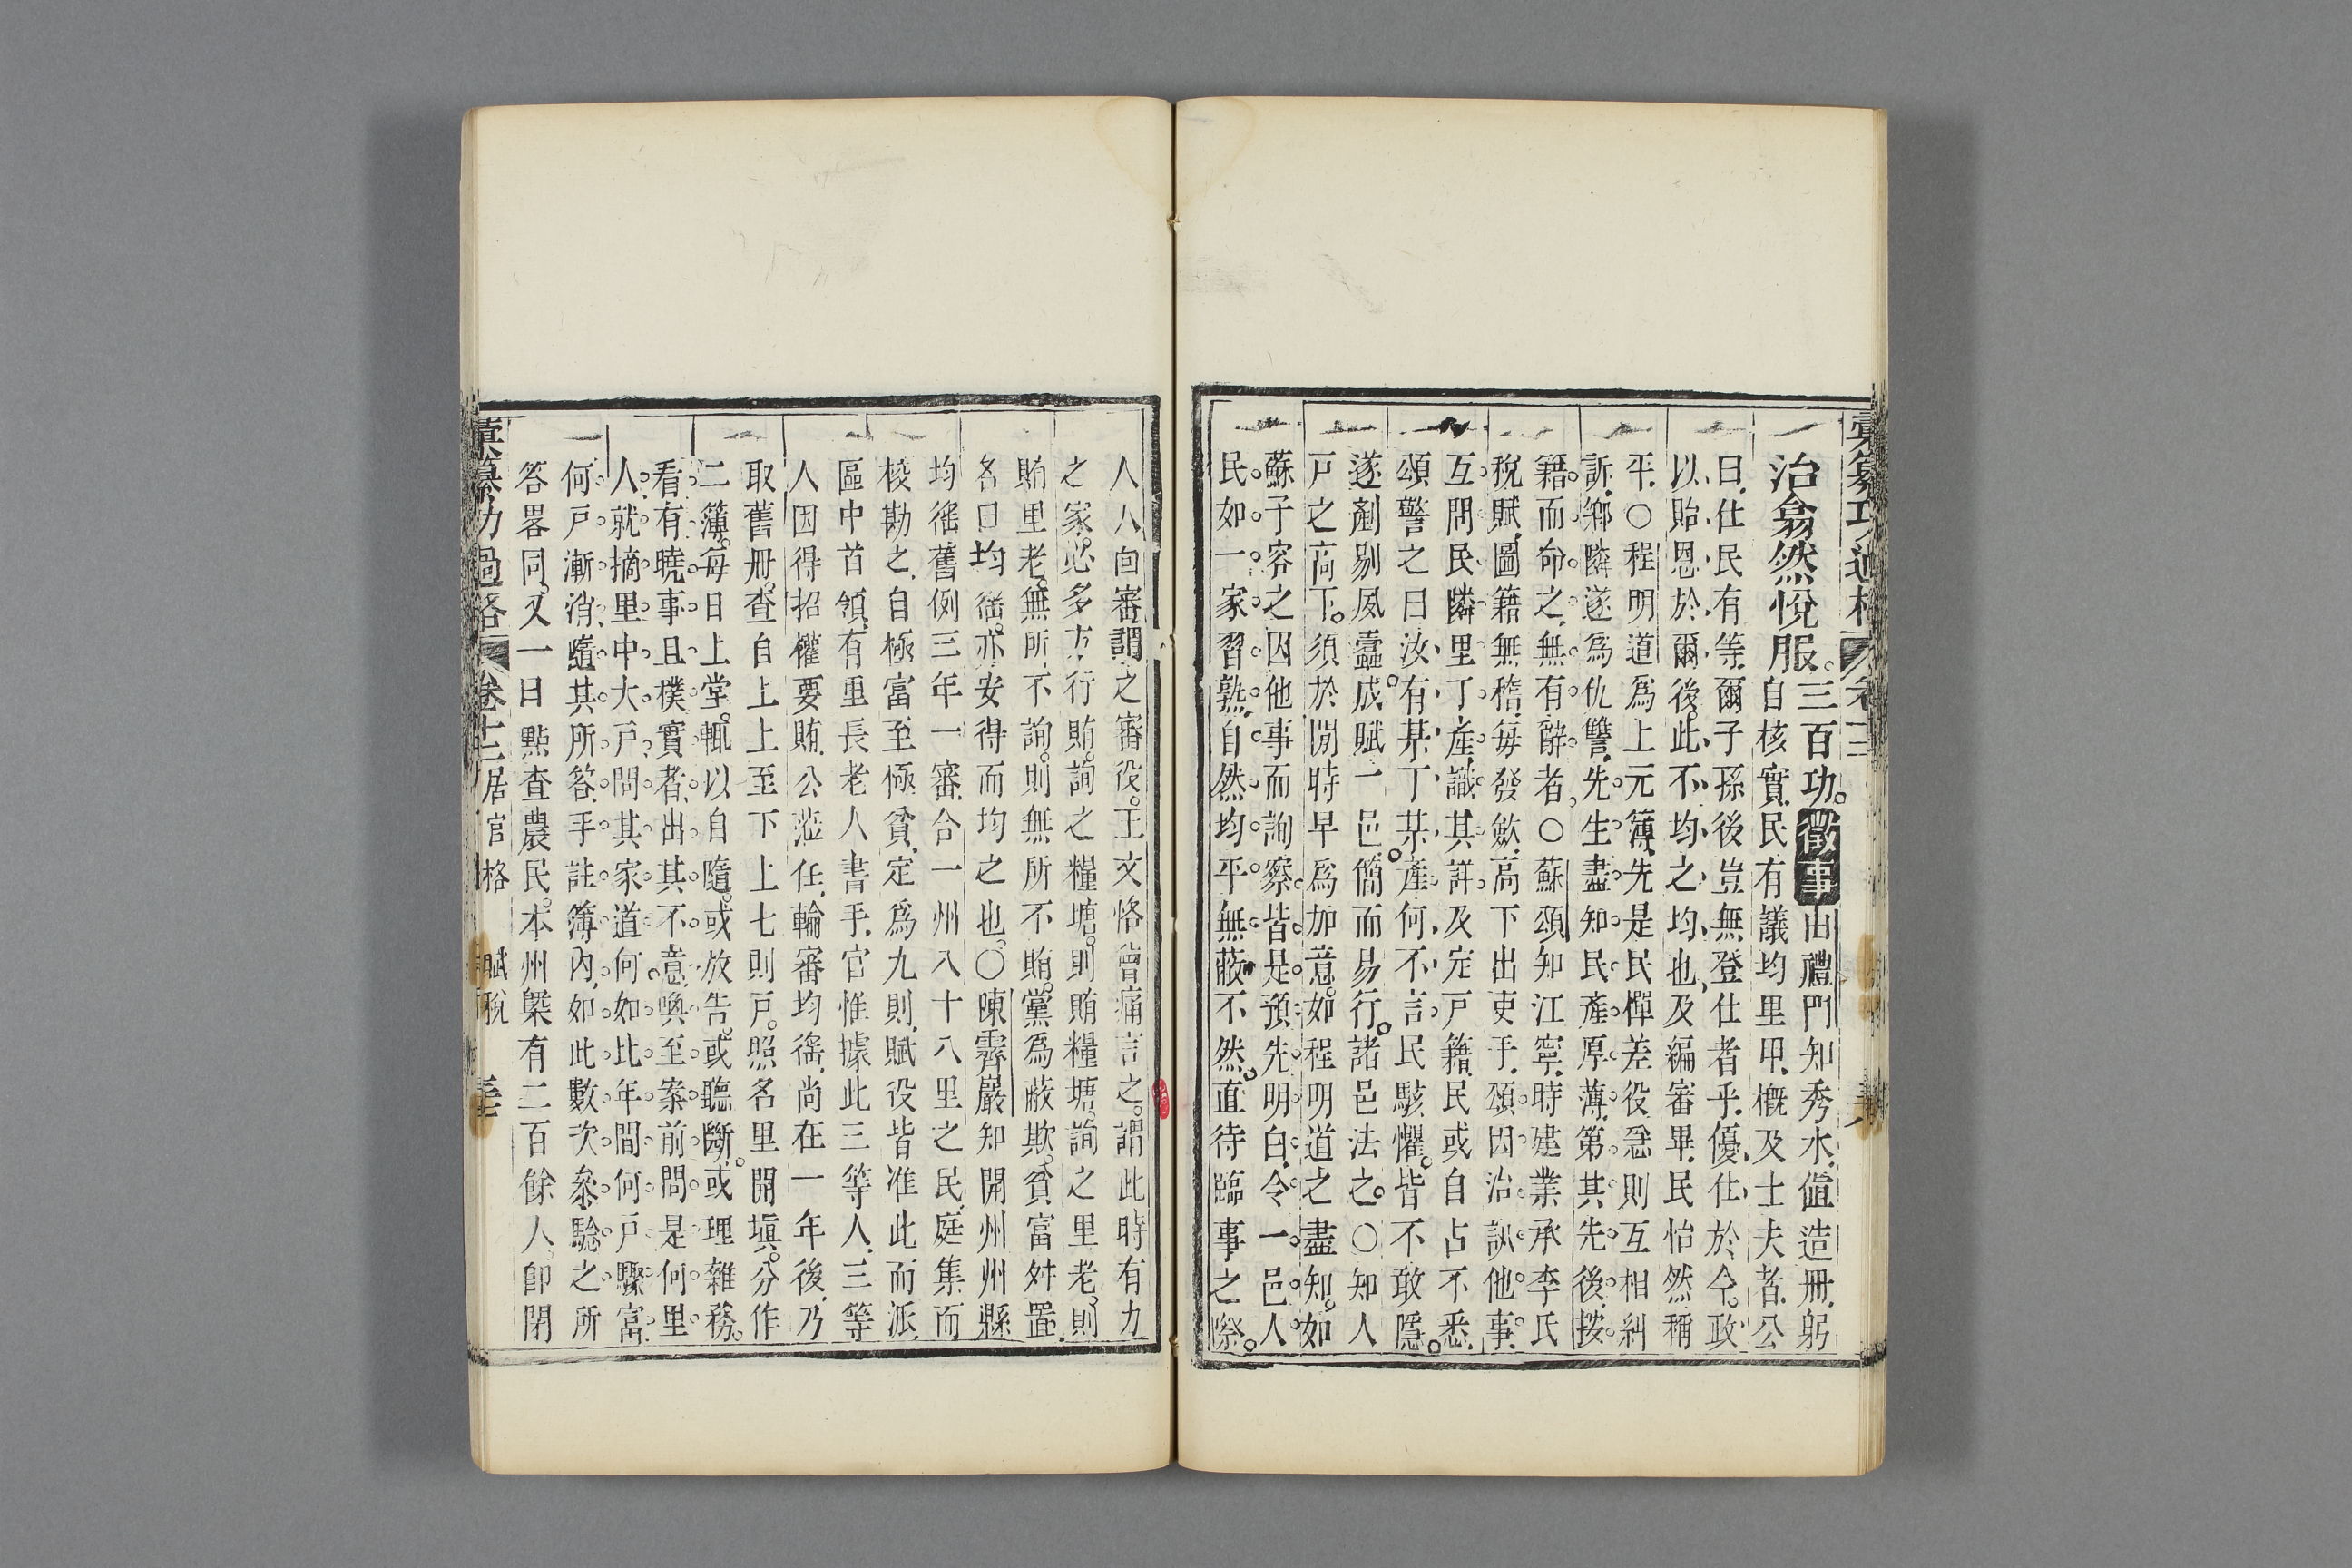 彙纂功過格 卷十二
治翕然悅服三百功徵事由禮門知秀水值造冊躬
自核實民有議均里甲概及士夫者公
曰仕民有等爾子孫後豈無登仕者乎優仕於今政
以貽恩於爾後此不均之均也及編審畢民怡然稱
平○程明道為上元簿先是民憚差役急則互相糾
訴鄉隣遂為仇讐先生盡知民產厚薄第其先後按
籍而命之無有辭者○蘇頌知江寧時建業承李氏
稅賦圖籍無稽每發斂高下出吏手頌因治訟他事
互問民隣里丁產識其詳及定戶籍民或自占不悉
頌警之曰汝有某丁某產何不言民駭懼皆不敢隱
遂剷剔夙蠹成賦一邑簡而易行諸邑法之○知人
戶之高下須於閒時早為加意如程明道之盡知如
蘇子容之因他事而詢察皆是預先明白令一邑人
民如一家習熟自然均平無蔽不然直待臨事之察
人人面審謂之審役王文恪曾痛言之謂此時有力
之家必多方行賄詢之糧塘則賄糧塘詢之里老則
賄里老無所不詢則無所不賄黨為蔽欺貧富舛置
名曰均徭亦安得而均之也○陳霽巖知開州州縣
均徭舊例三年一審合一州八十八里之民庭集而
校勘之自極富至極貧定為九則賦役皆准此而派
區中首領有里長老人書手官惟據此三等人三等
人因得招權要賄公蒞任輪審均徭尚在一年後乃
取舊冊查自上上至下上七則戶照名里開填分作
二簿每日上堂輒以自隨或放告或聽斷或理雜務
看有曉事且樸實者出其不意喚至案前問是何里
人就摘里中大戶問其家道何如比年間何戶驟富
何戶漸消隨其所答手註簿內如此數次參驗之所
答畧同又一日點查農民本州槩有二百餘人卽閉
彙纂功過格 卷十二 居官格 賦稅